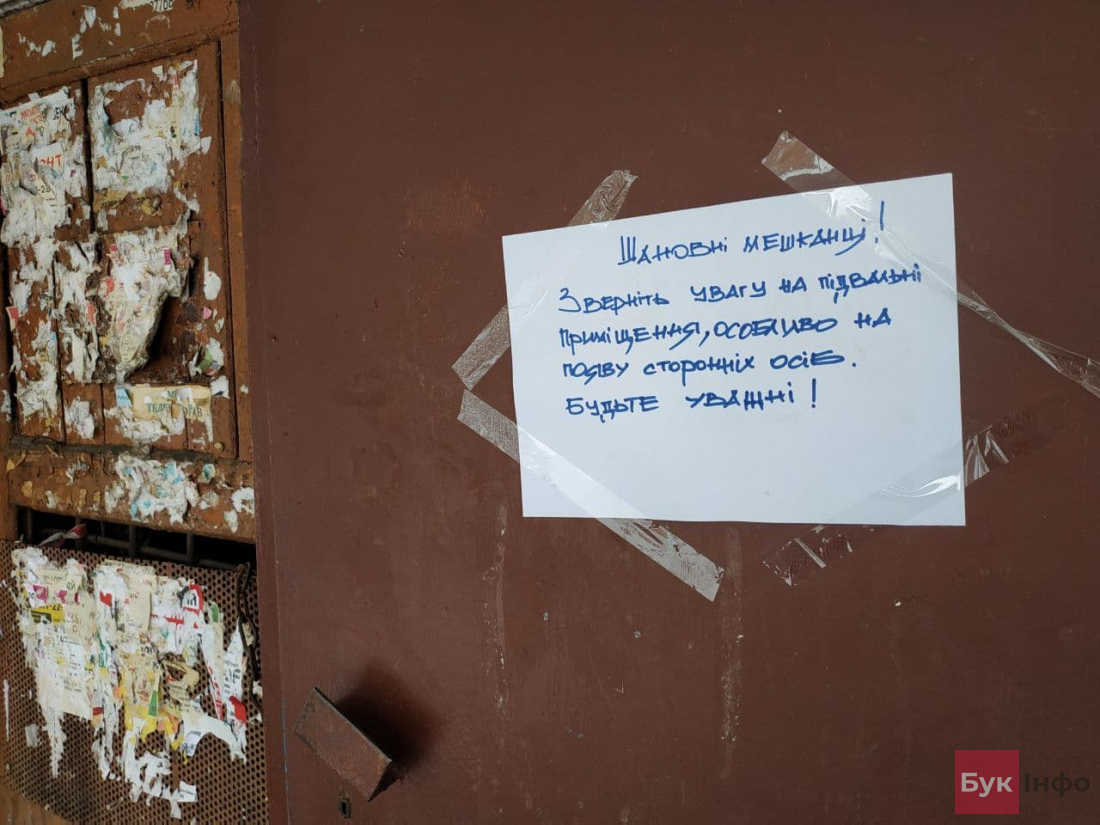 Шановні мешканці!
Зверніть увагу на підвальні
приміщення, особливо на
появу сторонніх осіб.
Будьте уважні!
Бук Інфо